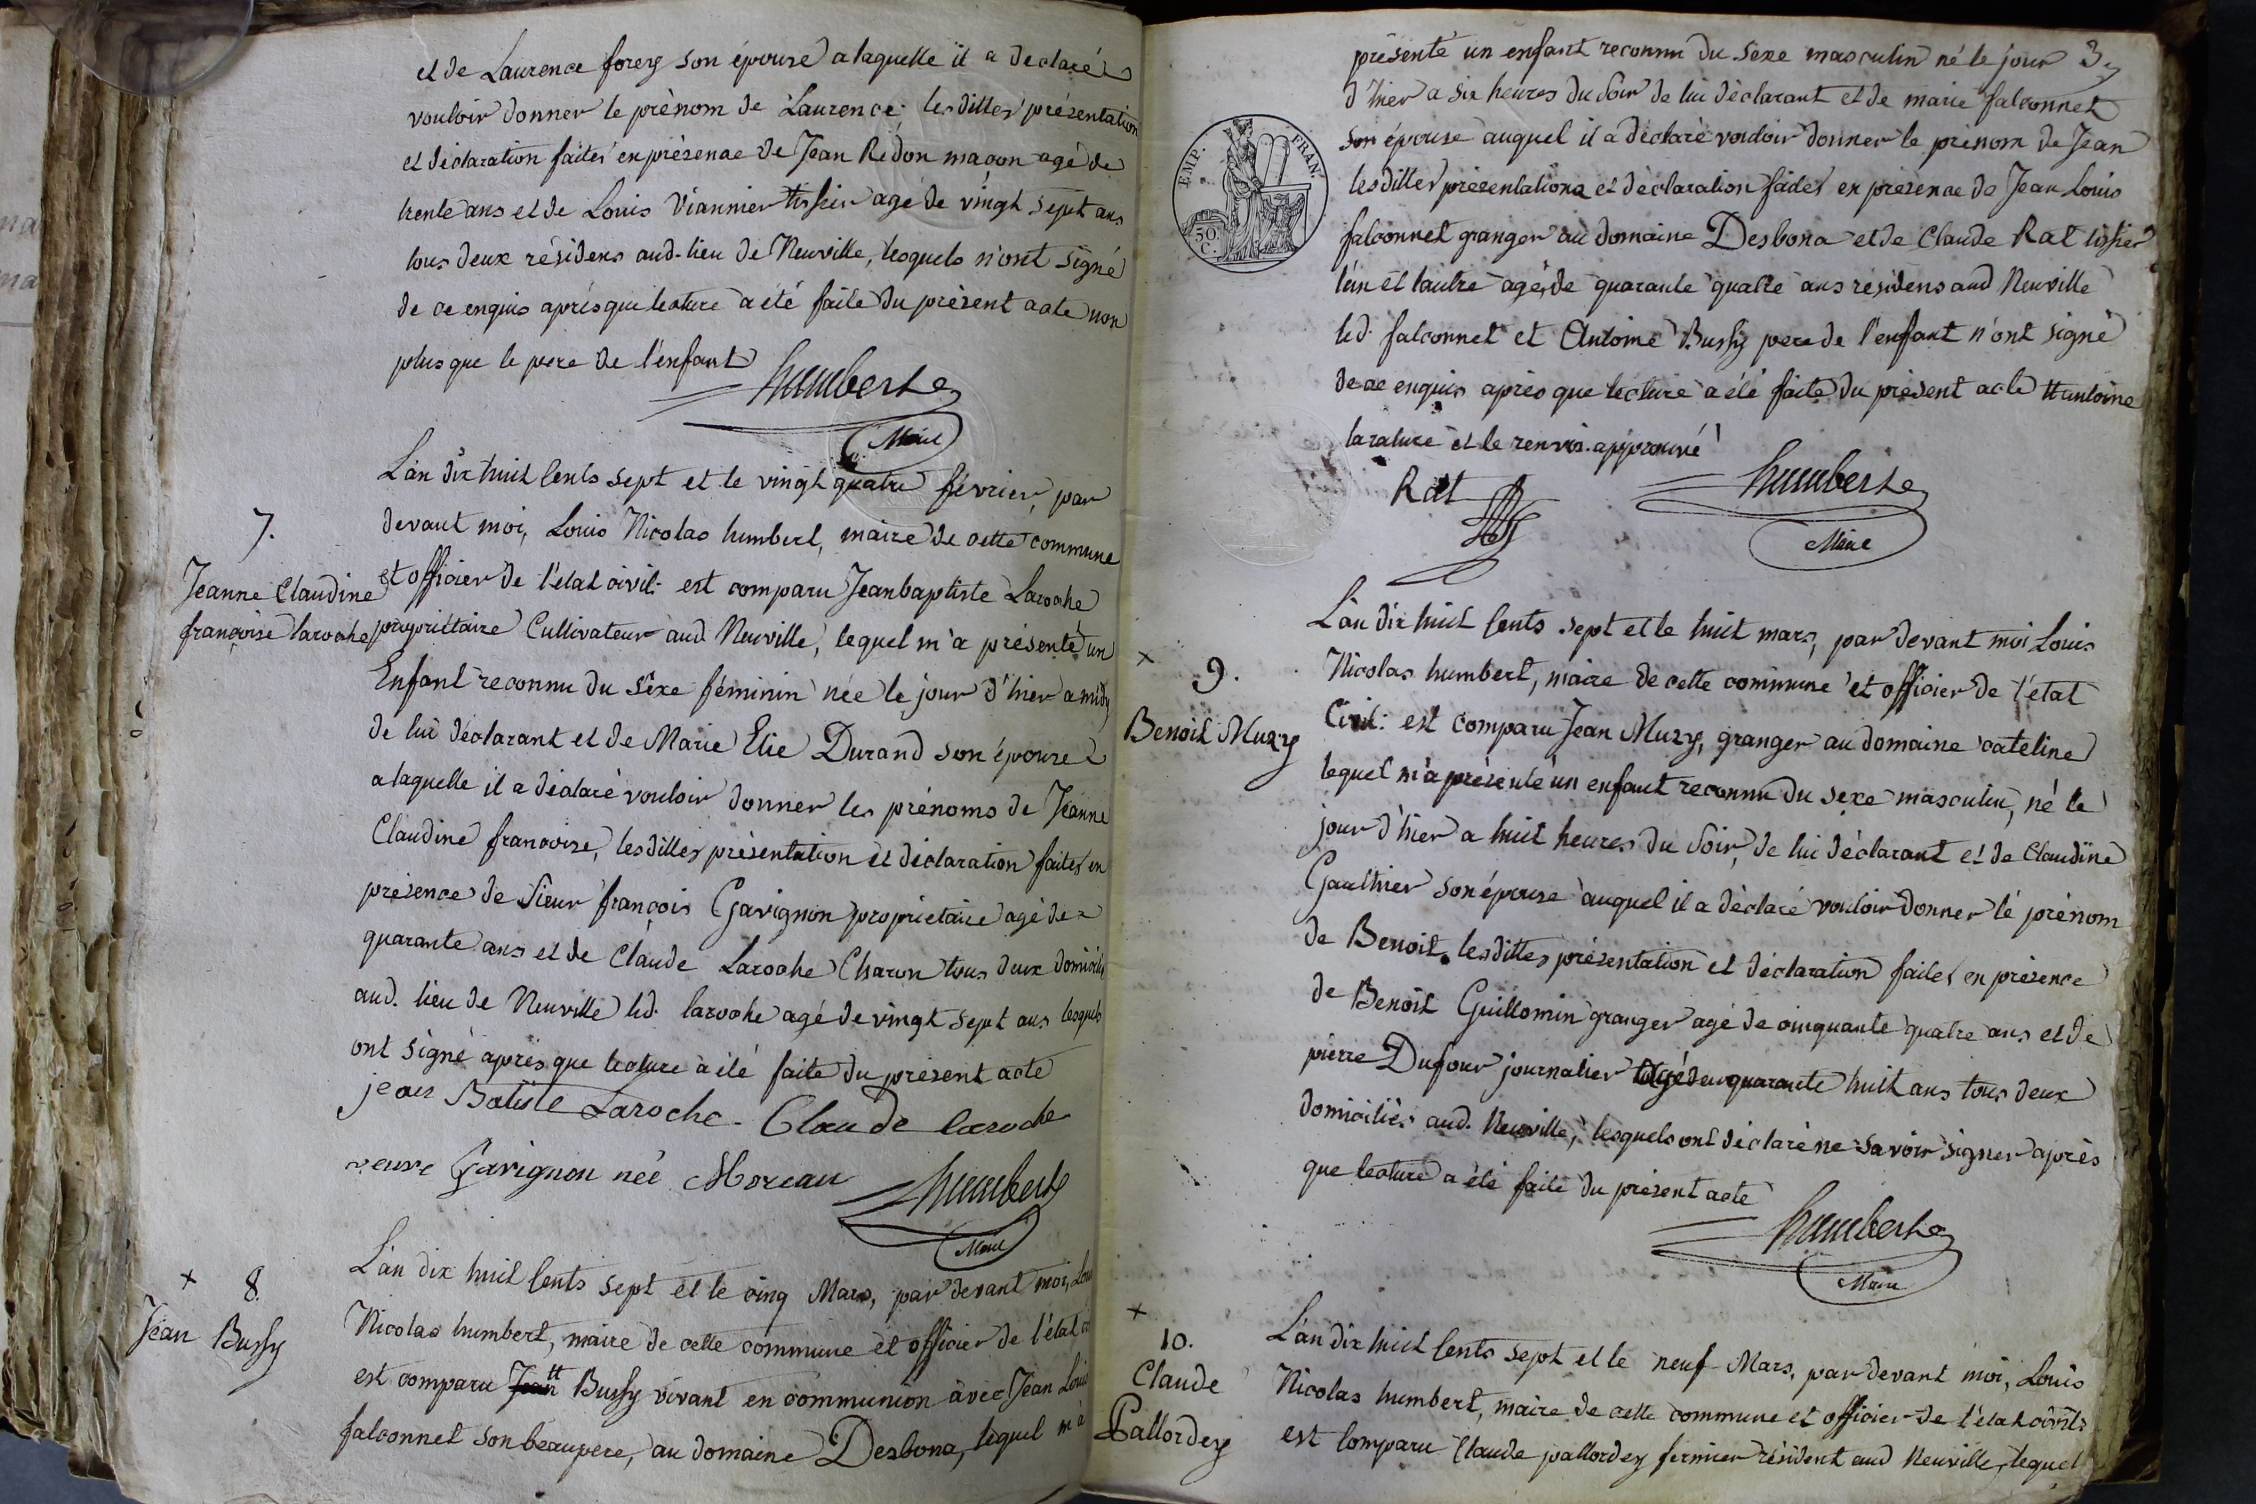 et de Laurence forey son épouse a laquelle il a déclaré
vouloir donner le prénom de Laurence. lesdittes présentation
et déclaration faites en présence de Jean Rédon maçon agé de
trente ans et de Louis Viannier tissier agé de vingt sept ans
tous deux résidens aud. lieu de Neuville, lesquels n'ont signé
de ce enquis après que lecture a été faite du présent acte non
plus que le pere de l'enfant
humbert
Maire
7.
Jeanne Claudine
françoise laroche
L'an dix huit cents sept et le vingt quatre février, par
devant moi, Louis Nicolas humbert, maire de cette commune
et officier de l'état civil: est comparu Jean baptiste Laroche
propriétaire Cultivateur aud. Neuville, lequel m'a présenté un
Enfant reconnu du sexe féminin née le jour d'hier a midy
de lui déclarant et de Marie Elie Durand son épouse
a laquelle il a déclaré vouloir donner les prénoms de Jeanne
Claudine francoise, lesdittes présentation et déclaration faites en
présence de Sieur françois Gavignon propriétaire agé de
quarante ans et de Claude Laroche Charon tous deux domiciliés
aud. lieu de Neuville led. laroche agé de vingt sept ans lesquels
ont signé après que lecture a été faite du présent acte
jean Batiste Laroche - Claude laroche
veuve Gavignon neé Moreau
humbert
Maire
+ 8.
Jean Bussy
L'an dix huit cents sept et le cinq Mars, par devant moi, Louis
Nicolas humbert, maire de cette commune et officier de l'état
est comparu Jean tt Bussy vivant en communion avec Jean Louis
falconnet son beaupere, au domaine Desbona, lequel m'a
3
présenté un enfant reconnu du sexe masculin né le jour
d'hier a six heures du soir de lui déclarant et de marie falconnet
son épouse auquel il a déclaré vouloir donner le prénom de Jean
lesdittes présentations et déclaration faites en présence de Jean Louis
falconnet granger au domaine Desbona et de Claude Rat tissier
l'un et l'autre agés de quarante quatre ans résidens aud Neuville
led. falconnet et Antoine Bussy pere de l'enfant n'ont signé
de ce enquis après que lecture a été faite du présent acte tt antoine
la rature et le renvoi approuvé
EMP. FRAN.
50 C.
Rat
humbert
Maire
+
9.
Benoit Muzy
L'an dix huit cents sept et le huit mars, par devant moi Louis
Nicolas humbert, maire de cette commune et officier de l'état
Civil: est comparu Jean Muzy, granger au domaine cateline
lequel m'a présenté un enfant reconnu du sexe masculin, né le
jour d'hier a huit heures du soir, de lui déclarant et de Claudine
Gaulthier son épouse auquel il a déclaré vouloir donner le prénom
de Benoit, lesdittes présentation et déclaration faites en présence
de Benoit Guillomin granger agé de cinquante quatre ans et de
pierre Dufour journalier agé de quarante huit ans tous deux
domiciliés aud. Neuville, lesquels ont déclaré ne savoir signer après
que lecture a été faite du présent acte
humbert
Maire
+
10.
Claude
Pallordey
L'an dix huit cents sept et le neuf Mars, par devant moi, Louis
Nicolas humbert, maire de cette commune et officier de l'état civil:
est comparu Claude pallordey fermier résident aud Neuville, lequel